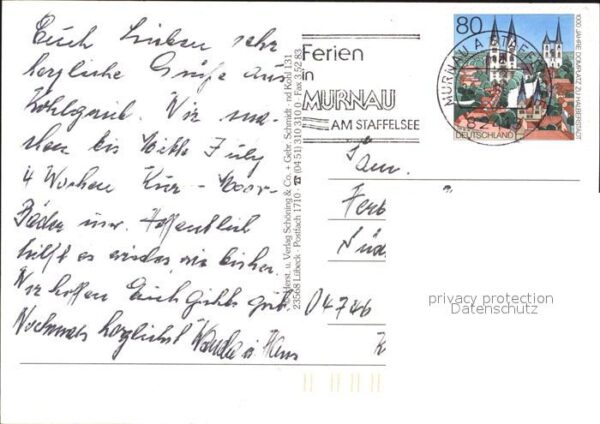 Euch Lieben sehr
herzliche Grüße aus
Kohlgrub. Wir ma-
chen bis Mitte July
4 Wochen Kur - Moor-
Bäder usw. Hoffentlich
hilft es wieder wie bisher.
Wir hoffen Euch geht's gut
Nochmals herzlichst
Ferien
in
MURNAU
AM STAFFELSEE
MURNAU A STAFF
82
80
DEUTSCHLAND
1000 JAHRE DOMPLATZ ZU HALBERSTADT
Herst. u. Verlag Schöning & Co. + Gebr. Schmidt · nd Kohl 131
23568 Lübeck · Postfach 1710 · ☎ (04 51) 310 31 0 · Fax 3 52 83
Fam.
04746
privacy protection
Datenschutz